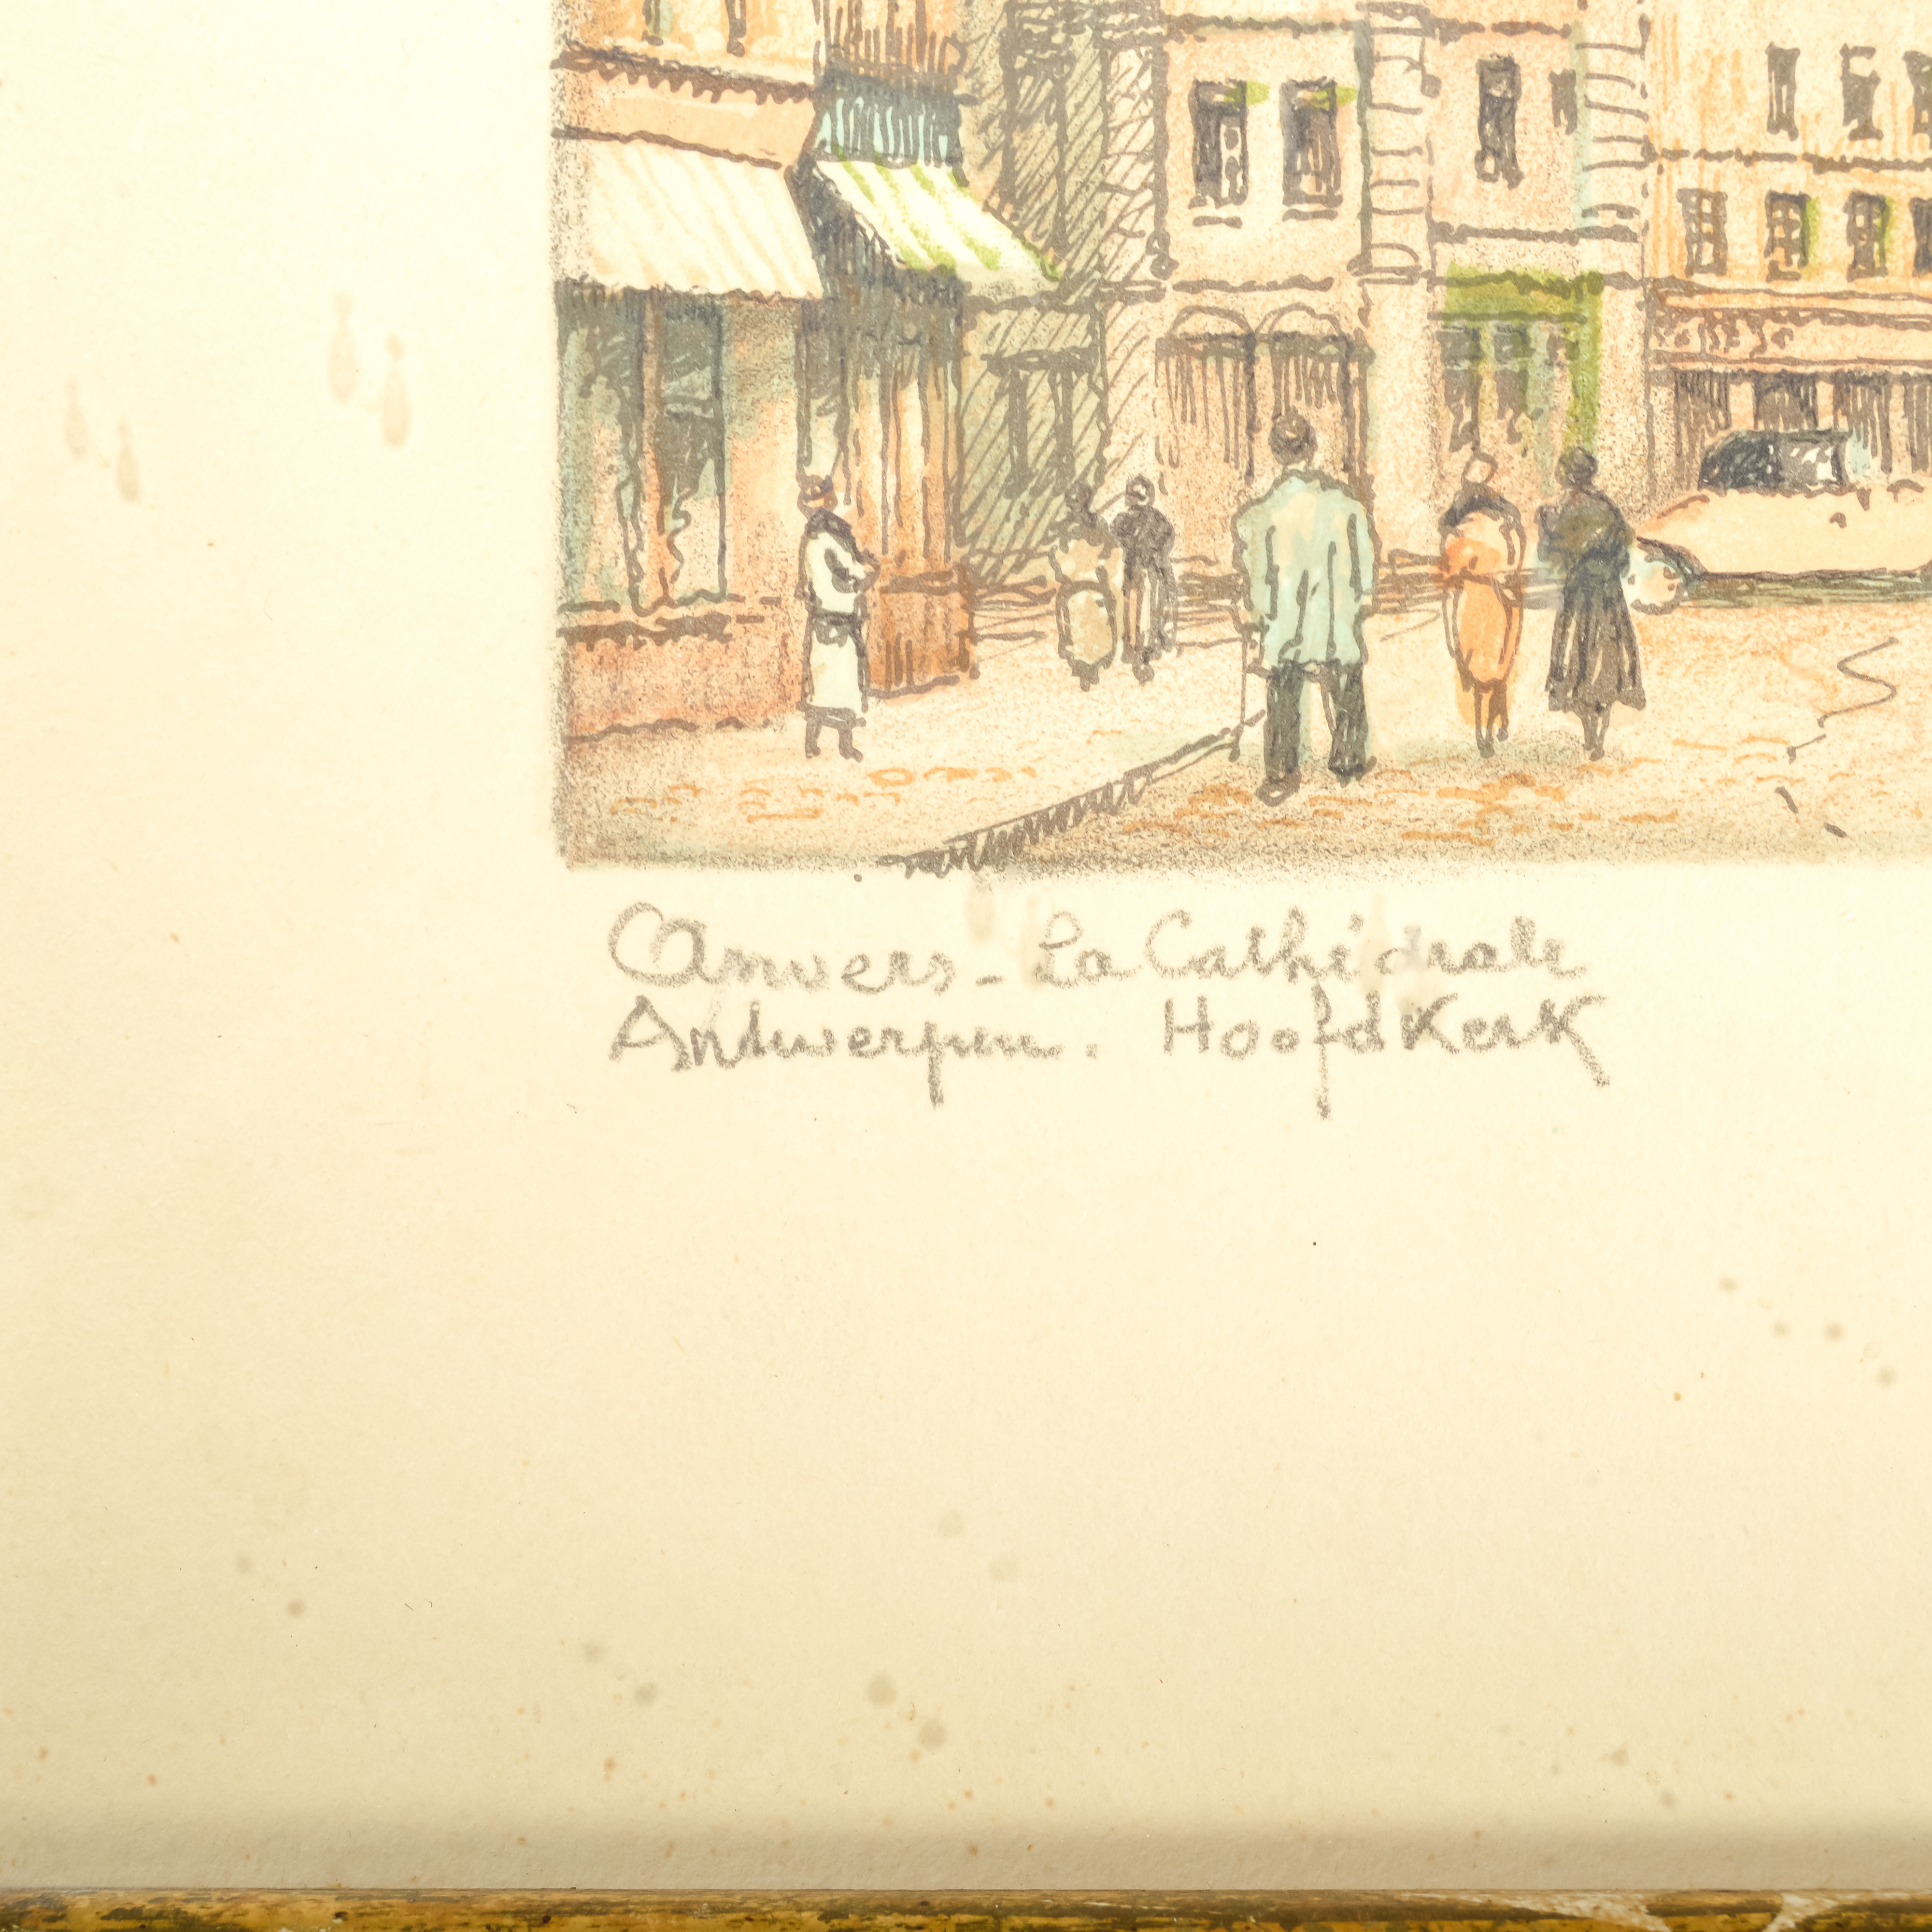 Anvers - La Cathédrale
Antwerpen. Hoofdkerk